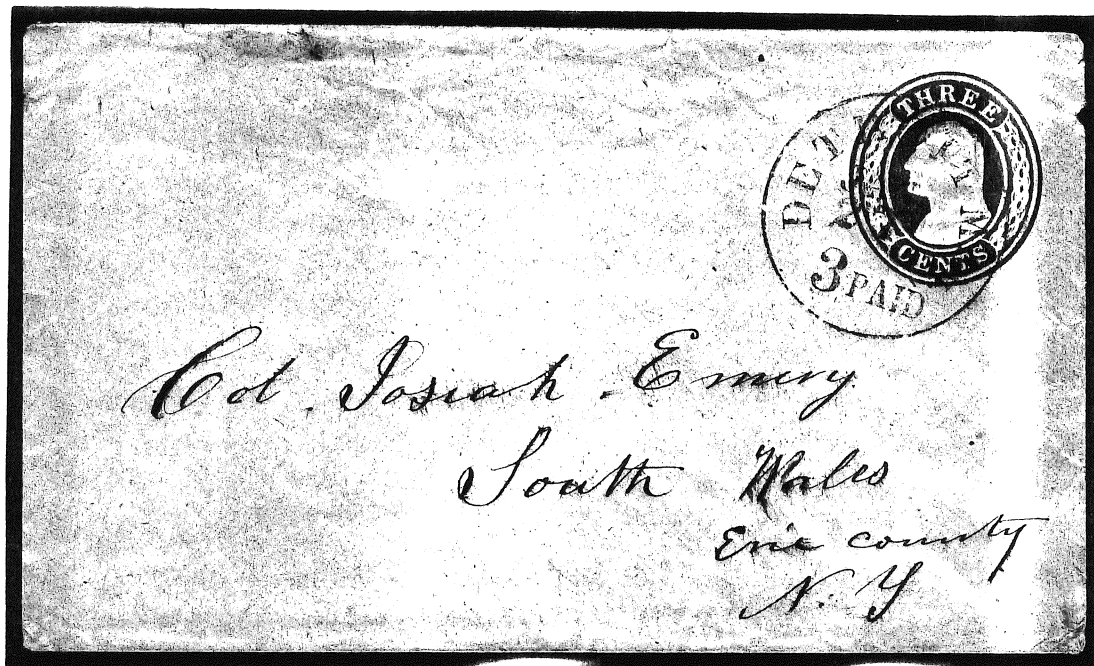 THREE
CENTS
3 PAID
Col. Josiah. Emery
South Wales
Erie county
N. Y